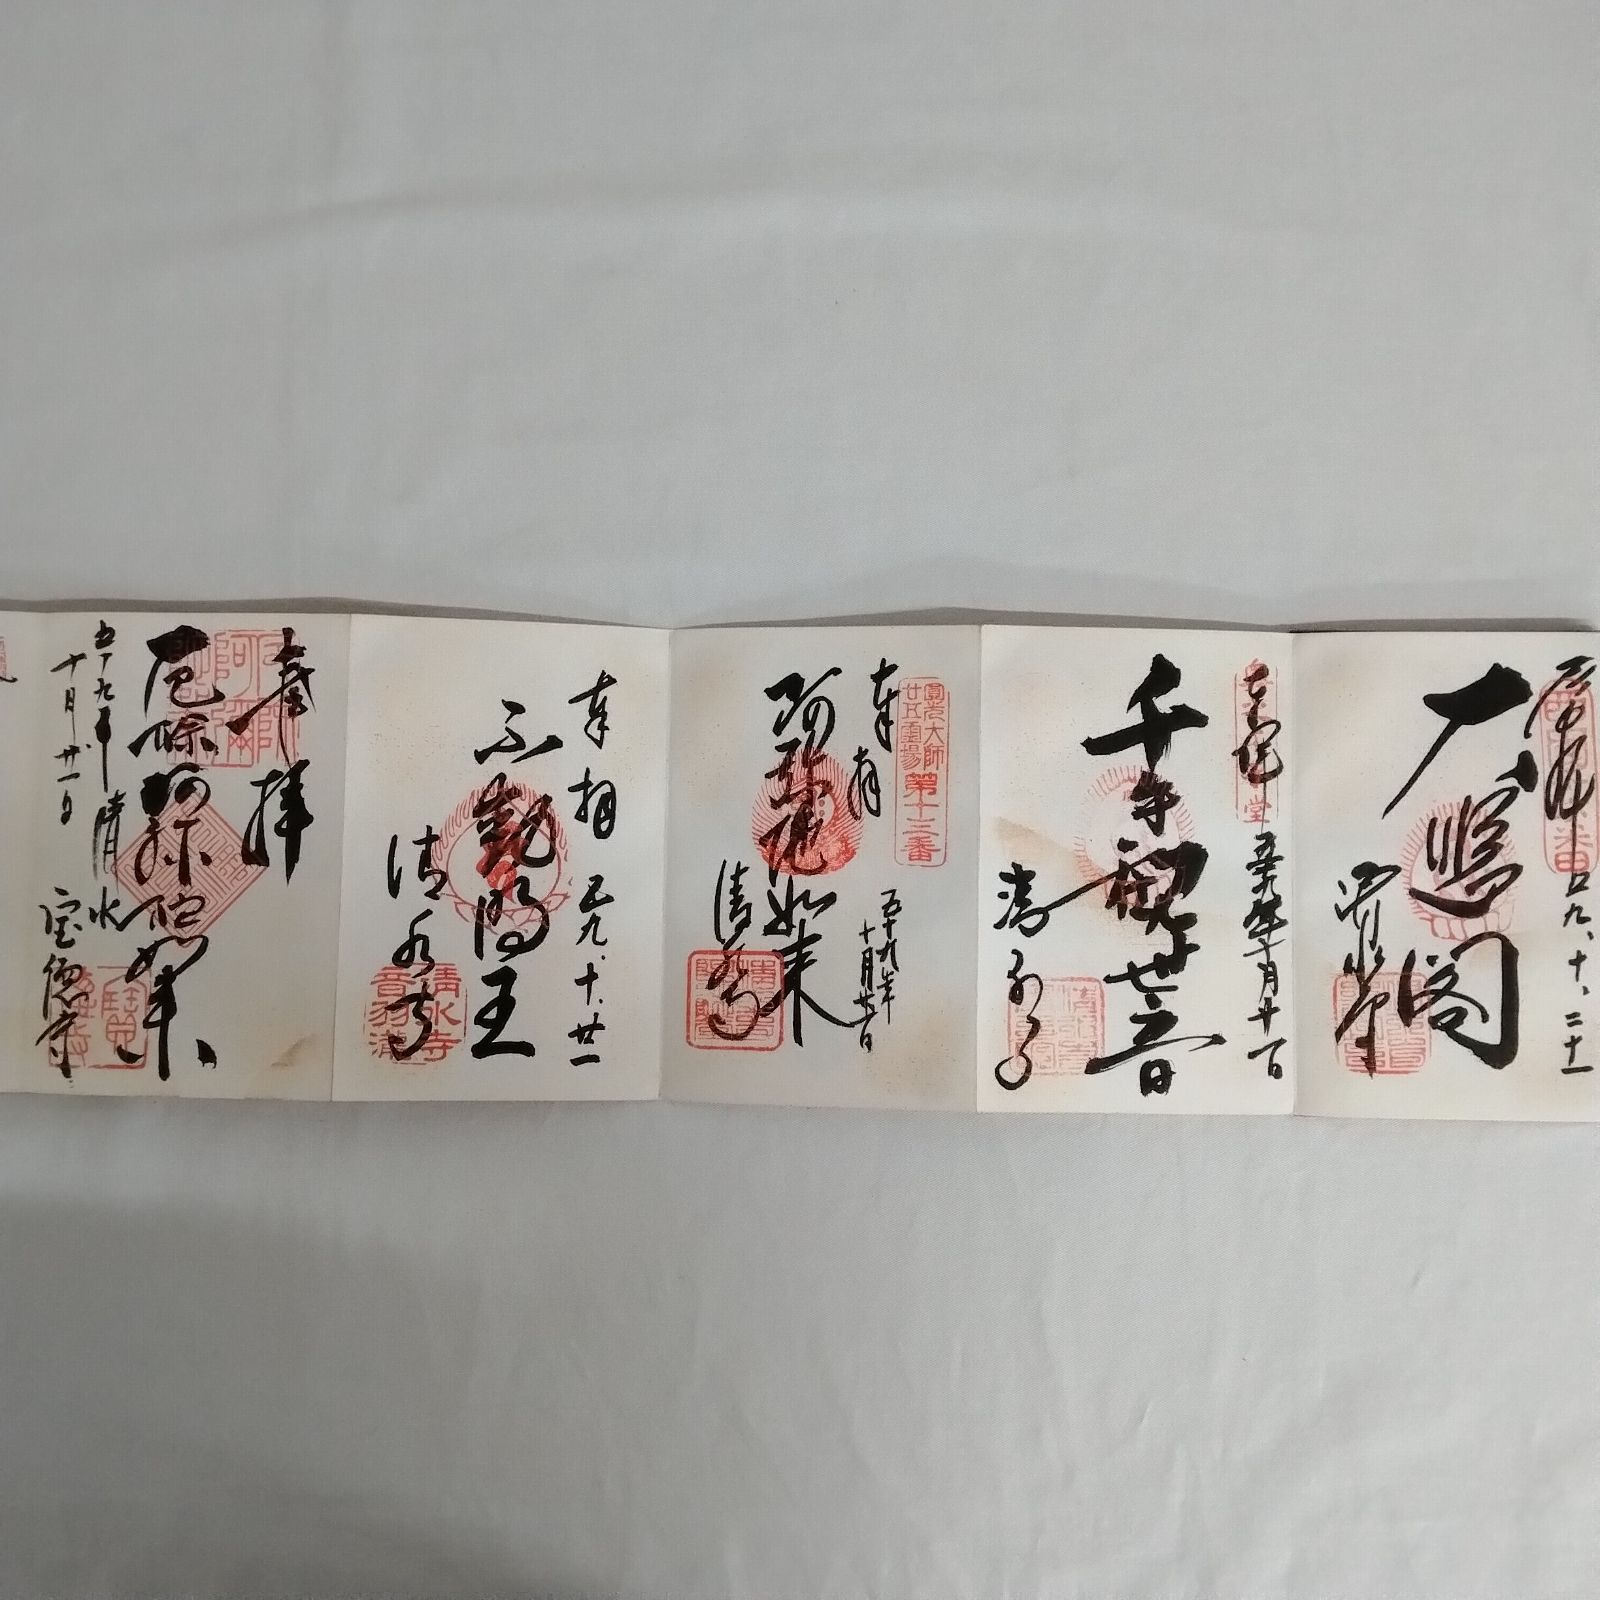 奉拝
五九、十、二十一
大悲閣
清水寺
奉拝
五十九年十月廿一日
千手観世音
清水寺
圓光大師
廿五霊場第十三番
奉拝
五十九年
十月廿一日
阿弥陀如来
清水寺
奉拝 五九、十、廿一
不動明王
清水寺
清水寺
音羽瀧
奉拝
厄除阿弥陀如来
五十九年
十月廿一日
清水
宝徳寺